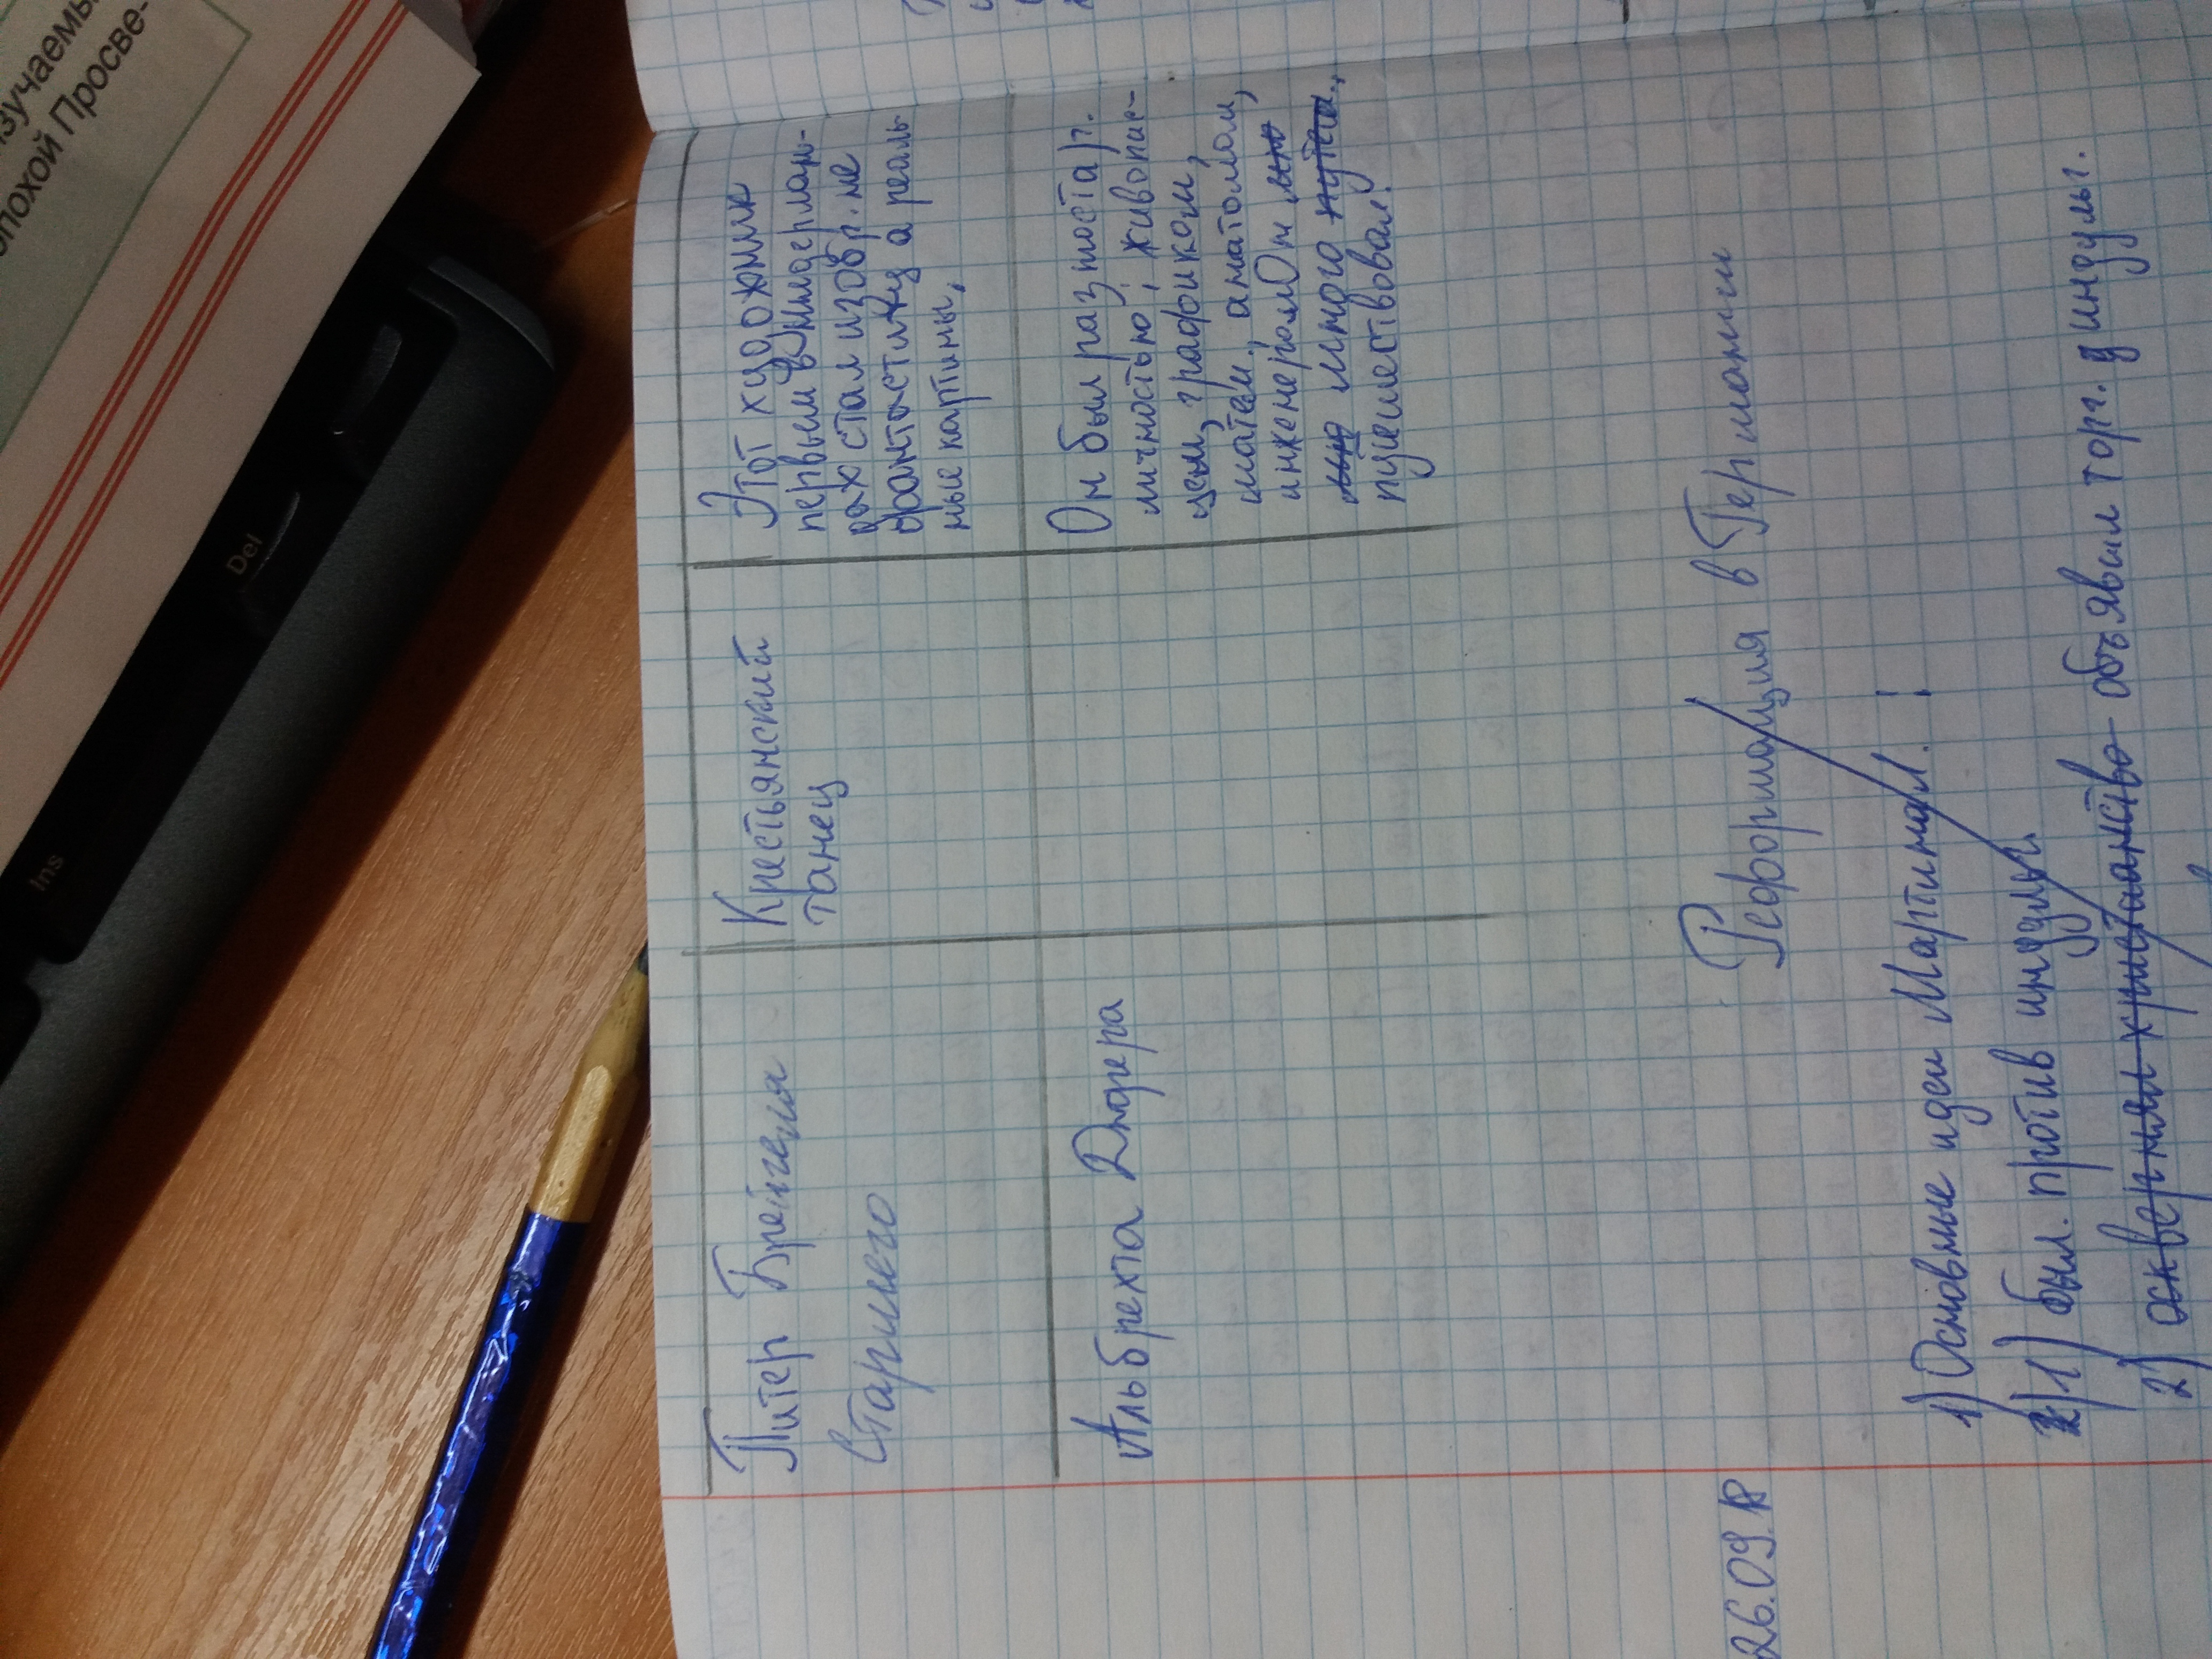 изучаемы
эпохой Просве-
Del
Ins
Питер Брейгеля
Старшего
Крестьянский
танец
Этот художник
первым в нидерлан-
дах стал изобр. не
фантастику а реаль
ные картины,
Альбрехта Дюрера
Он был разностар.
личностью, живопис-
цем, графиком,
матем, анатомом,
инженером Он
много
путешествовал.
26.09.18
Реформация в Германии
1) Основные идеи Мартина Л.
1) был. против индульг.
2) осквернял христианство объявил торг. индульг.